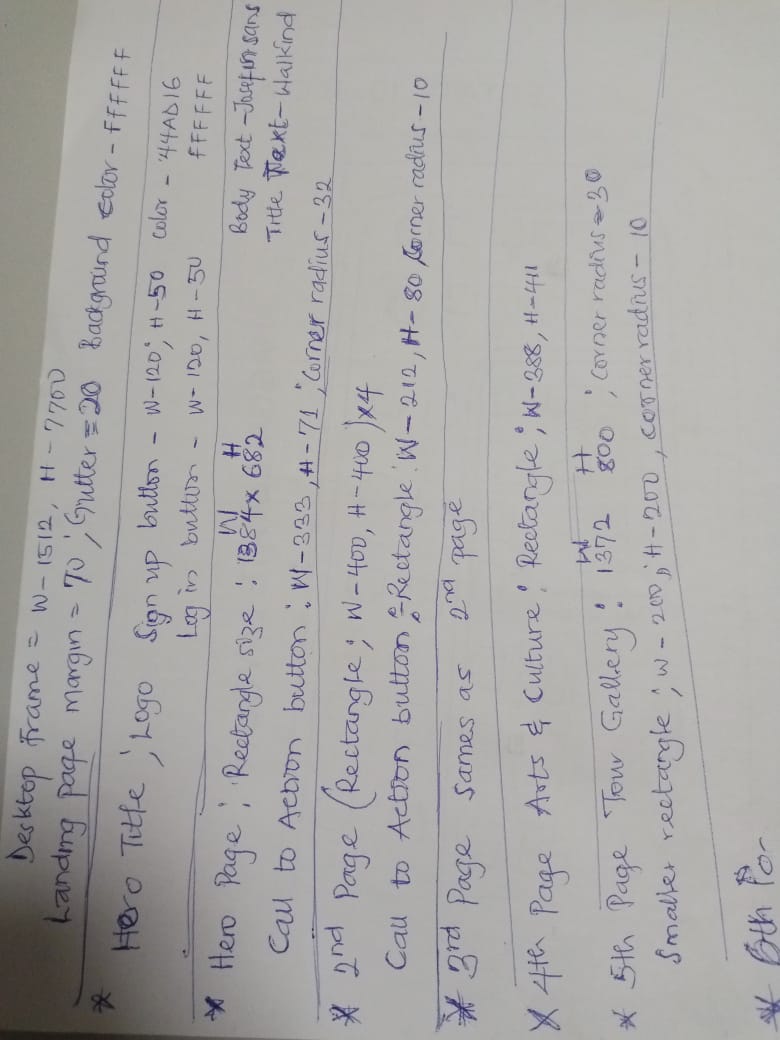 Desktop Frame = W-1512, H-7700
Landing page margin = 70 ; Gutter = 20 Background color - FFFFFF
* Hero Title ; Logo Sign up button - W-120; H-50 color - 44AD16
Log in button - W-120, H-50 FFFFFF
* Hero Page ; Rectangle size : W 1384 x H 682
Body Text - Josefin sans
Title Text - Walkind
Call to Action button : W-333, H-71 ; Corner radius - 32
* 2nd Page (Rectangle ; W-400, H-400) x4
Call to Action button : Rectangle : W-212, H-80 Corner radius - 10
* 3rd Page sames as 2nd page
* 4th Page Arts & Culture : Rectangle ; W-388, H-411
* 5th Page Tour Gallery : W 1372 H 800 ; corner radius = 30
Smaller rectangle ; W-200 ; H-200, corner radius - 10
* 6th